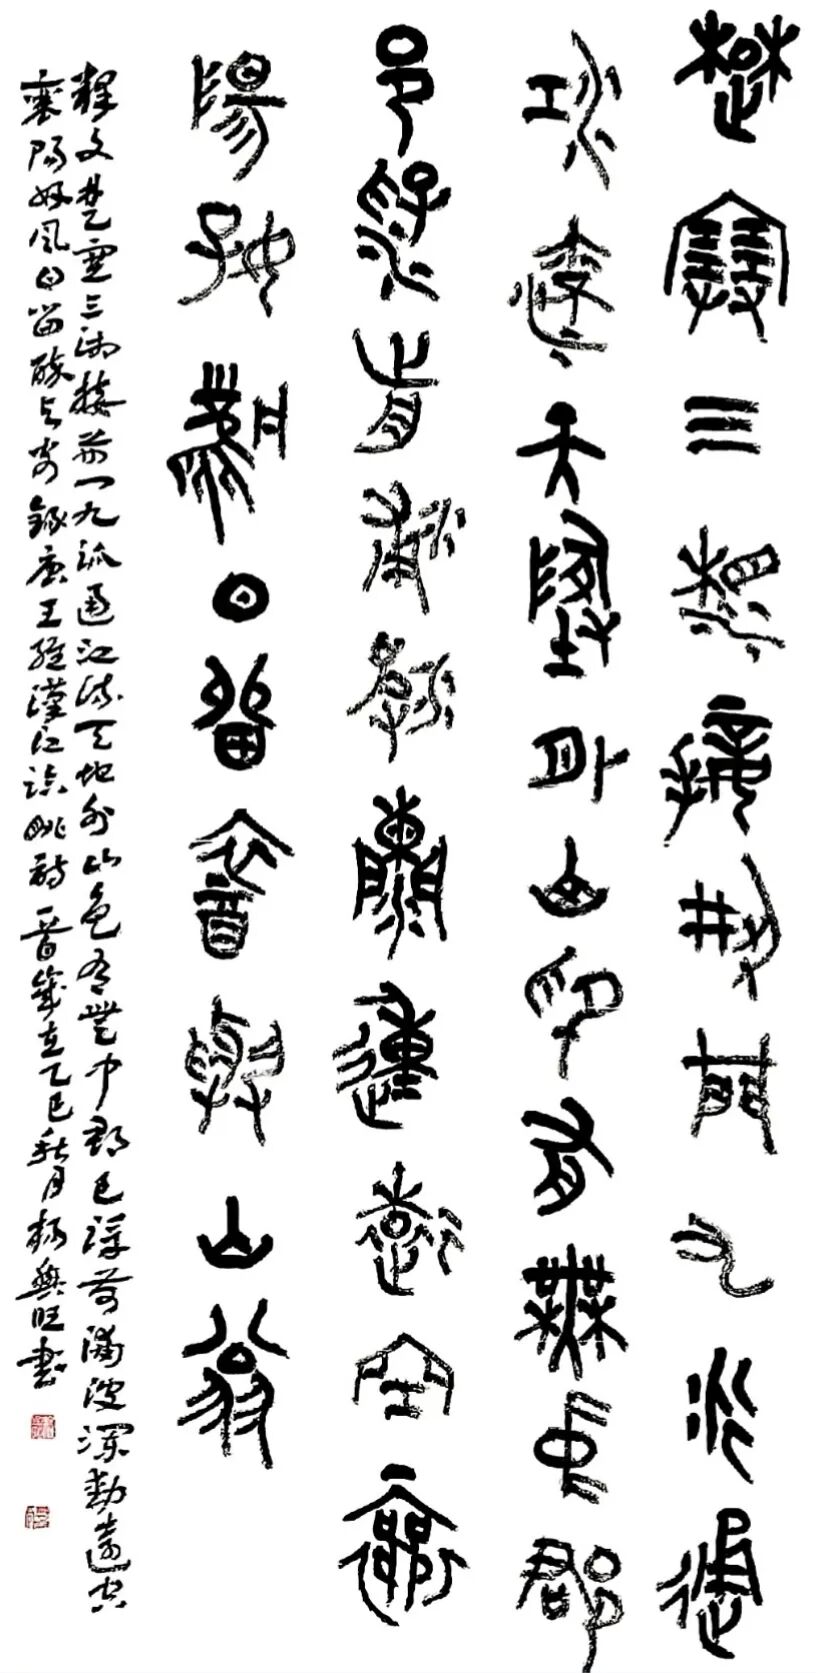 楚塞三湘接荆門九派通
江流天地外山色有無中郡
邑浮前浦波瀾動遠空襄
陽好風日留醉與山翁
釋文楚塞三湘接荆门九派通江流天地外山色有無中郡邑浮前浦波瀾動遠空
襄陽好風日留醉与山翁錄唐王維漢江臨眺詩一首歲在乙巳秋月楊興旺書